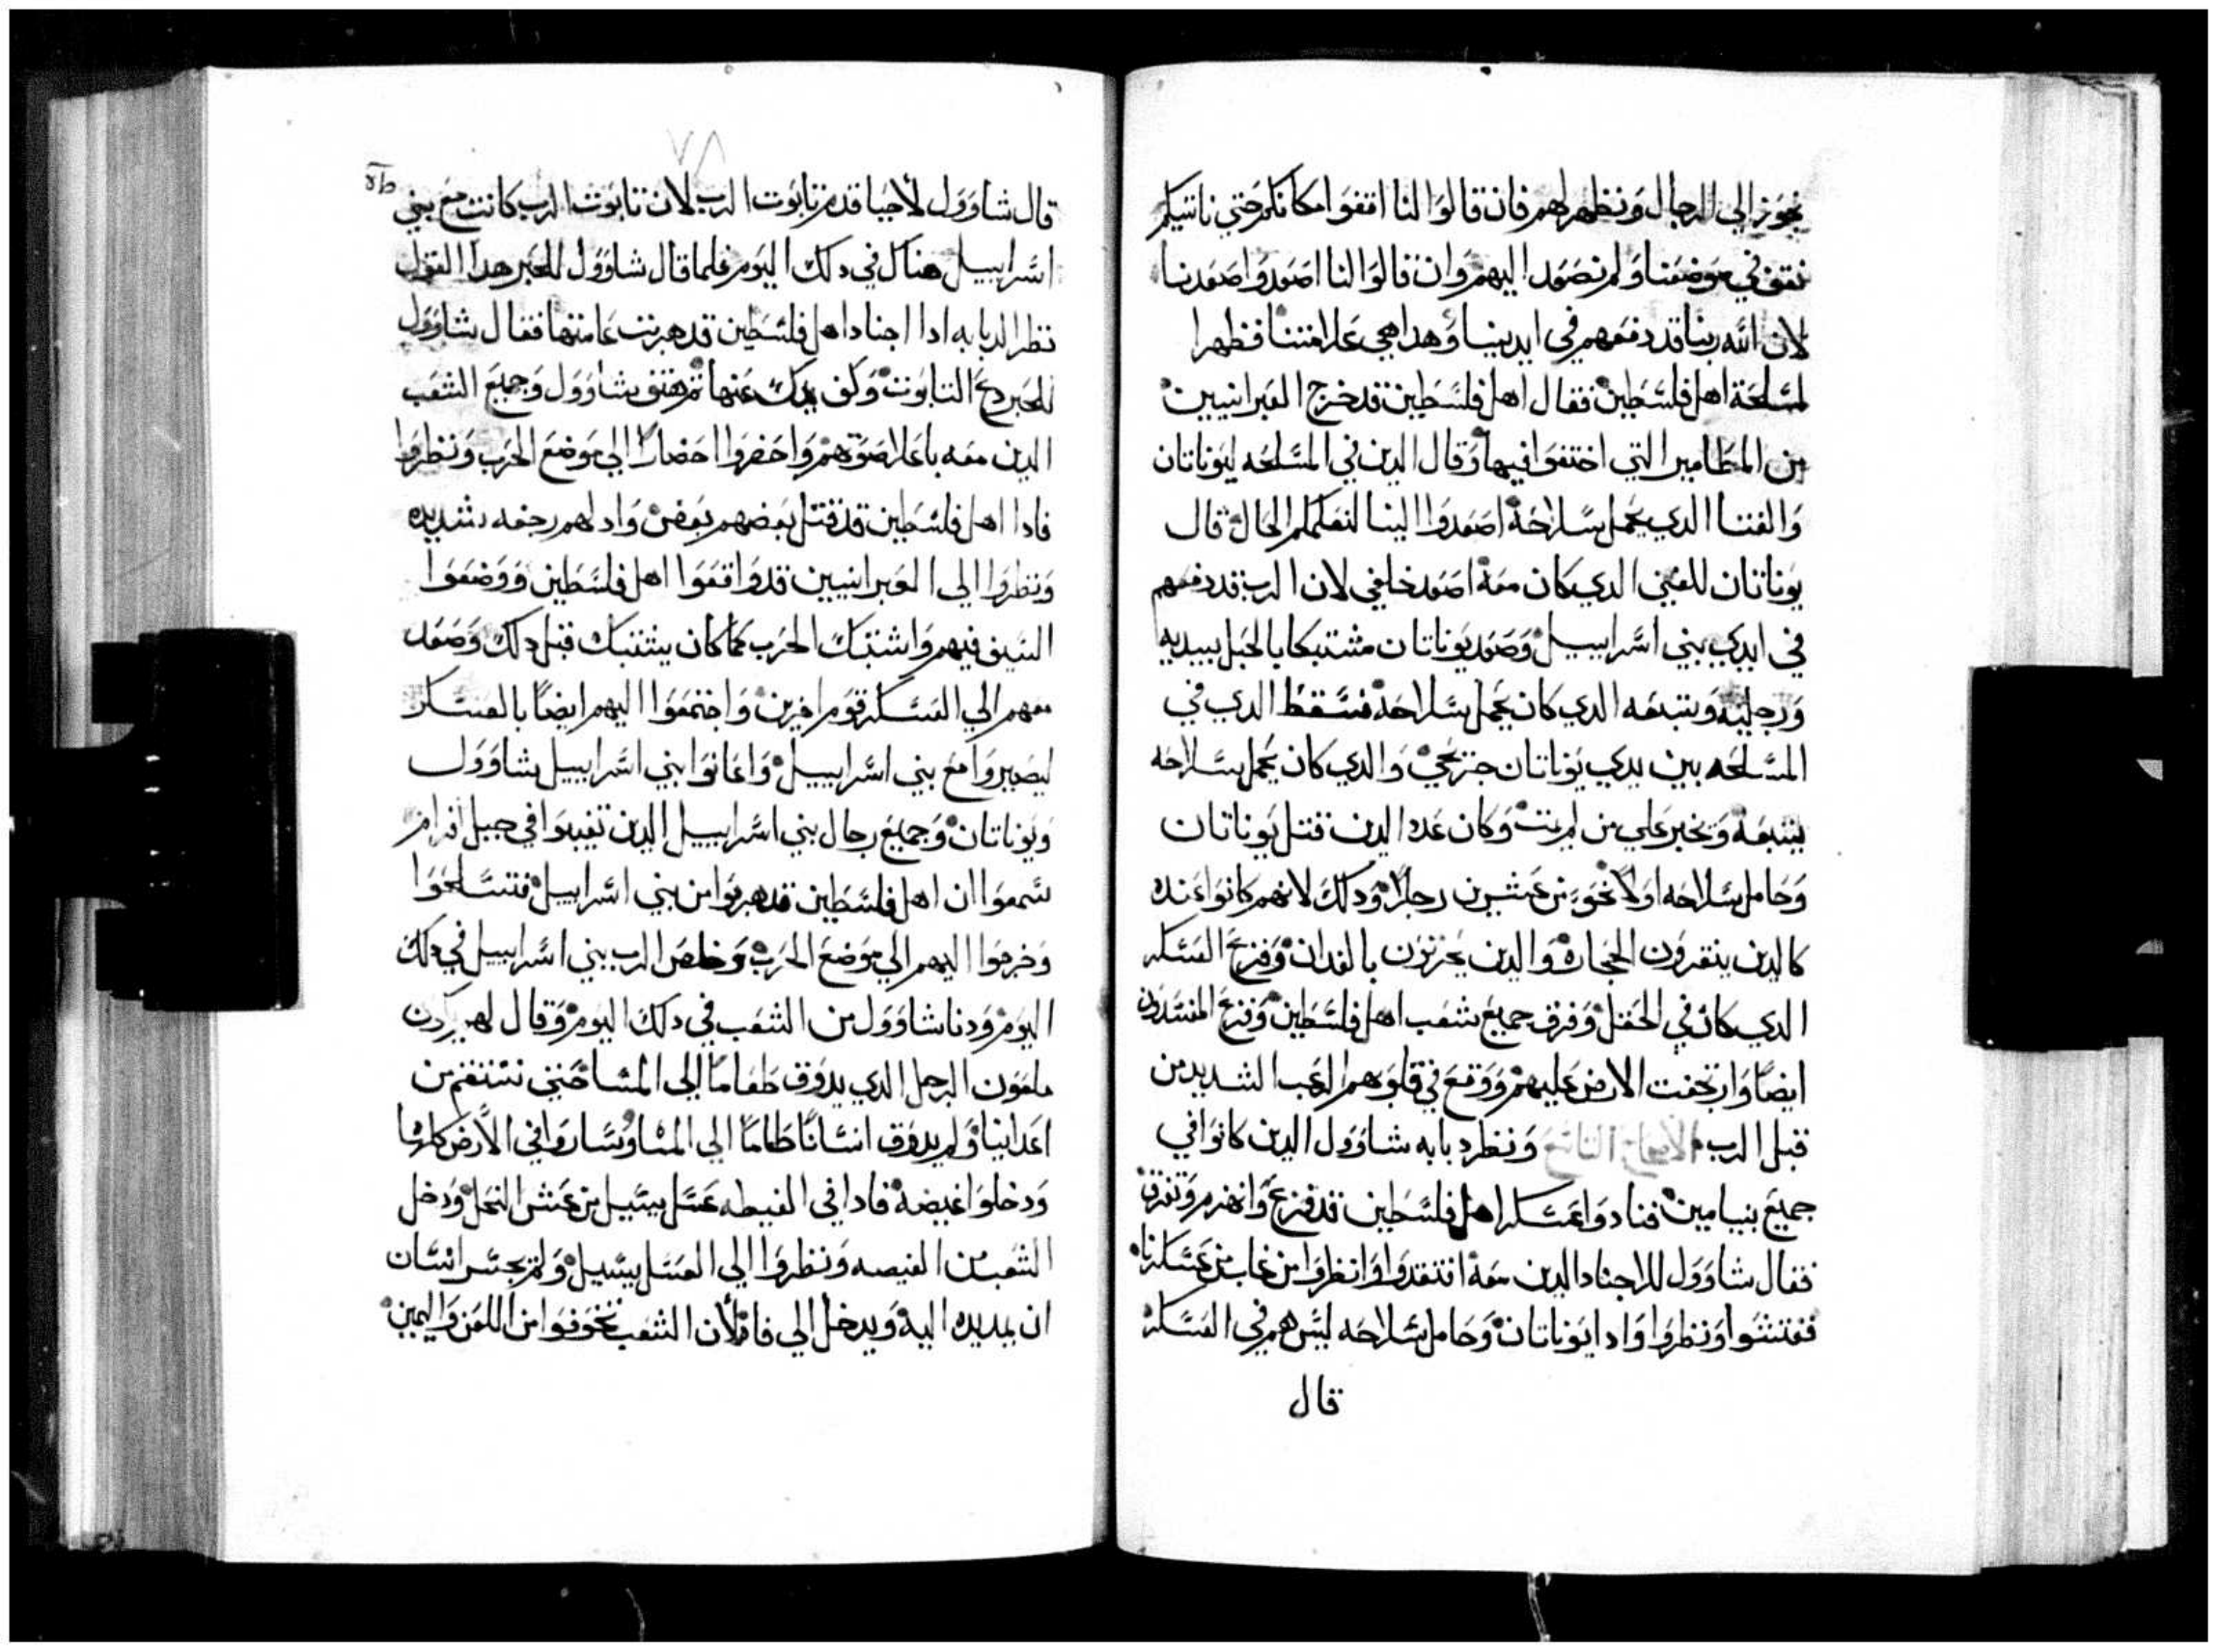 نجوز الي الرجال ونظهر لهم فان قالوا لنا اقفوا مكانكم حتي ناتيكم
نقف في موضعنا ولم نصعد اليهم وان قالوا لنا اصعدوا صعدنا
لان الله ربنا قد دفعهم في ايدينا وهدا هي علامتنا فظهرا
لمسلحة اهل فلسطين فقال اهل فلسطين قد خرج العبرانيين
من المطامير التي اختفوا فيها وقال الدين في المسلحه ليوناتان
والفتا الدي يحمل سلاحه اصعدوا الينا لنعلمكم الحال قال
يوناتان للفتي الدي كان معه اصعد خلفي لان الرب قد دفعهم
في ايدي بني اسراييل وصعد يوناتان مشتبكا بالحبل بيديه
ورجليه ويتبعه الدي كان يحمل سلاحه فسقط الدي في
المسلحه بين يدي يوناتان جريحي والدي كان يحمل سلاحه
يتبعه ويخبر علي من لم يمت وكان عده الدين قتل يوناتان
وحامل سلاحه اولا نحو من عشرين رجلا ودلك لانهم كانوا عنده
كالدين ينقرون الحجاره والدين يحرتون بالفدان وفزع العسكر
الدي كان في الحقل وفرق جميع شعب اهل فلسطين وفزع المفسدون
ايضا وارتجفت الارض عليهم ووقع في قلوبهم الرعب الشديد من
قبل الرب الاصحاح التاسع ونظر دبابه شاوول الدين كانوا في
جميع بنيامين فنادوا عسكر اهل فلسطين قد فزع وانهزم وتفرق
فقال شاوول للاجناد الدين معه افتقدوا وانظروا من غاب من عسكرنا
ففتشوا ونظروا وادا يوناتان وحامل سلاحه ليس هم في العسكر
قال
٧٨
قال شاوول لاحيا قدم تابوت الرب لان تابوت الرب كانت مع بني
اسراييل هناك في دلك اليوم فلما قال شاوول للحبر هدا القول
نظر الدبابه ادا اجناد اهل فلسطين قد هربت عامتها فقال شاوول
للحبر دع التابوت وكف يدك عنها ثم هتف شاوول وجميع الشعب
الدين معه باعلا صوتهم واحضروا احضارا الي موضع الحرب ونظروا
فادا اهل فلسطين قد قتل بعضهم بعض وادا لهم رجفه شديده
ونظروا الي العبرانيين قد واقعوا اهل فلسطين ووضعوا
السيف فيهم واشتبك الحرب كما كان يشتبك قبل دلك وصعد
معهم الي العسكر قوم اخرين واجتمعوا اليهم ايضا بالعسكر
ليصيروا مع بني اسراييل واعانوا بني اسراييل شاوول
ويوناتان وجميع رجال بني اسراييل الدين تغيبوا في جبل افرام
سمعوا ان اهل فلسطين قد هربوا من بني اسراييل فتسلحوا
وخرجوا اليهم الي موضع الحرب وخلص الرب بني اسراييل في دلك
اليوم ودنا شاوول من الشعب في دلك اليوم وقال لهم
ملعون الرجل الدي يدوق طعاما الي المسا حتي ننتقم من
اعداينا ولم يدوق انسانا طعاما الي المسا وساروا في الارض كلها
ودخلوا غيضه فادا في الغيطه عسل يسيل من عش النحل ودخل
الشعب من الغيصه ونظروا الي العسل يسيل ولم يجسر انسان
ان يمد يده اليه ويدخل الي فاه لان الشعب تخوفوا من اللعن واليمين